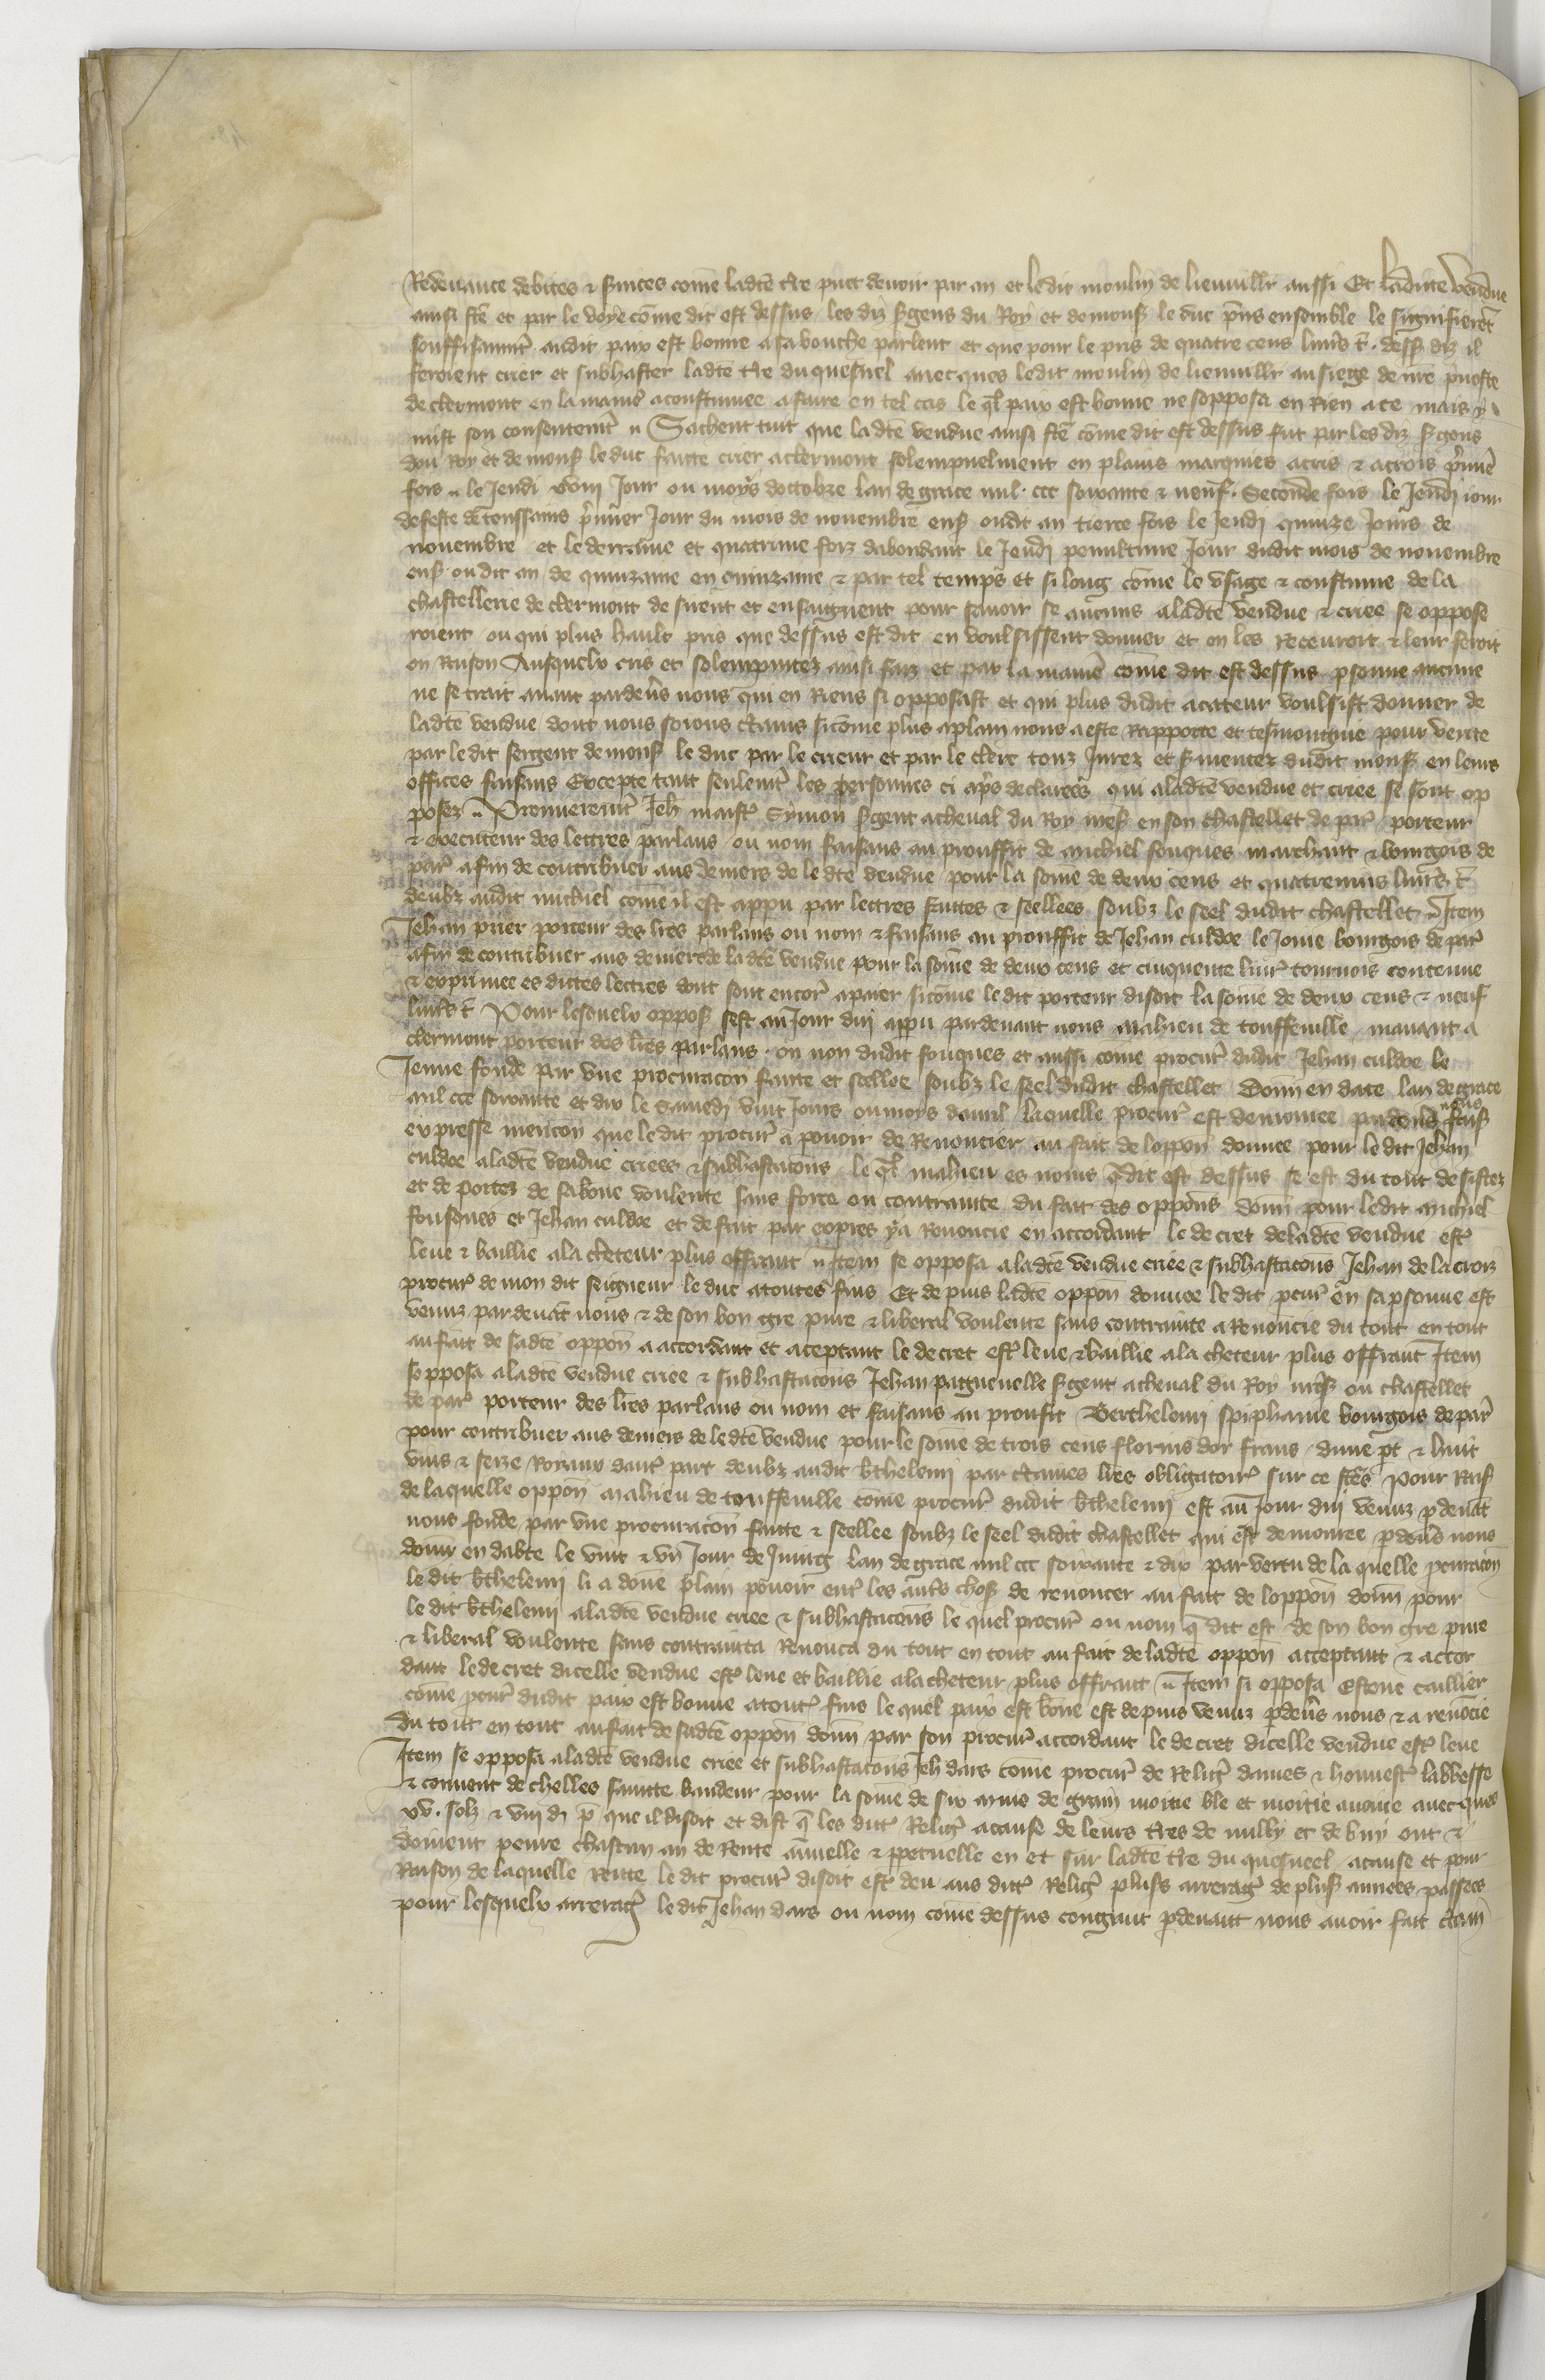 Redevance debites & s̄uices com̄e ladt̄e t̄re puet devoir par an et ledit moulin de lieuviller aussi Et ladicte vendue
ainsi ft̄e et par le voye com̄e dit est dessus les diz s̄gens du Roy et de mons̄ le duc p̄ns ensemble le signifierēt
souffisanm̄t audit paix est bonne a sa bouche parlent et que pour le pris de quatre cens livr̄s t̄. dess̄ diz il
feroient crier et subhaster ladt̄e t̄re du quesnel avecques ledit moulin de lieuviller au siege de nr̄e p̄voste
de clermont en la manier̄ acoustumee a faire en tel cas le q̄l paix est bonne ne sopposa en Rien a ce mais y
mist son consentemt̄ Sachent tuit que ladt̄e vendue ainsi ft̄e com̄e dit est dessus fut par les diz s̄gens
dou Roy et de mons̄ le duc faitte crier a clermont solempnelment en plains marquies a cris & a crois p̄mie
fois le Jeudi xviii Jour ou moys doctobre lan de grace mil. ccc soixante & neuf. Seconde fois le Jeudi iour
de feste de toussains p̄mier Jour du mois de novembre ens̄ oudit an tierce fois le Jeudi quinze Jours de
novembre et le derraine et quatrime foiz dabondant le Jeudi penultime Jour dudit mois de novembre
ens̄ ou dit an de quinzaine en quinzaine & par tel temps et si long com̄e le usage & coustume de la
chastellerie de clermont desirent et ensaignent pour savoir se aucuns a ladt̄e vendue & criee se oppose
roient ou qui plus hault pris que dessus est dit en voulsissent donner et on les Recevroit & leur feroit
on Raison Ausquelx cris et solempnitez ainsi faiz et par la manier̄ com̄e dit est dessus psonne aucune
ne se trait avant pardevs̄ nous qui en Riens si opposast et qui plus dudit acateur voulsist donner de
ladt̄e vendue dont nous soions c̄tains sicom̄e plus aplain nous a este Rapporte et tesmoingnie pour verite
par le dit sergent de mons̄ le duc par le crieur et par le clerc touz Jurez et s̄mentez dudit mons̄ en leurs
offices faisans Excepte tant seulemt̄ les personnes ci apr̄s declarees qui a ladt̄e vendue et criee se sont op
posez Premieremt̄ Jeh̄ maistr̄ Symon s̄gent a cheval du Roy nr̄es̄ en son chastellet de par̄ porteur
& executeur des lettres parlans ou nom faisans au prouffit de michiel fouques marchant & bourgois de
par̄ afin de contribuer aus deniers de le dt̄e vendue pour la som̄e de deux cens et quatrevins livr̄s t̄
deubz audit michiel com̄e il est appu par lettres faittes & seellees soubz le seel dudit chastellet Item
Jehan prier porteur des lr̄es parlans ou nom & faisans au prouffit de Jehan culdoe le Jone bourgois de par̄
afin de contribuer aus deniers de ladt̄e vendue pour la som̄e de deux cens et cinquente livr̄ tournois contenue
& exprimee es dictes lettres dont sont encor̄ a paier sicom̄e ledit porteur disoit la som̄e de deux cens & neuf
livr̄s t̄ Pour lesquelx oppos̄ sest au Jour dui appu pardevant nous mahieu de touffenille manant a
clermont porteur des lr̄es parlans. ou non dudit fouques et aussi com̄e procur̄ dudit Jehan culdoe le
Jeune fonde par une procuracōn faitte et seellee soubz le seel dudit chastellet Donn̄ en date lan de grace
mil ccc soixante et dix le samedi vint Jours ou moys davril laquelle procur̄ est demouree pardevs̄ nous fais̄
expresse mencōn que ledit procur̄ a pouoir de Renoncier au fait de loppōn donnee pour le dit Jehan
culdoe a ladt̄e vendue criees & subhastacōns le q̄l mahieu es noms q̄ dit est dessus se est du tout desistez
et deportez de sa bon̄e voulente sans force ou contrainte du fait des oppōns donn̄ pour ledit michiel
fousques et Jehan culdoe et de fait par expres y a Renoncie en accordant le decret de ladt̄e vendue estr̄
leve & baillie a lacheteur plus offrant Item se opposa a ladt̄e vendue criee & subhastacōns Jehan de la croiz
procur̄ de mon dit seigneur le duc a toutes fins Et depuis ladt̄e oppōn donnee le dit pcur̄ en sa psonne est
venuz pardevāt nous & de son bon gre pure & liberal voulente sans contrainte a Renoncie du tout en tout
au fait de sadt̄e oppōn a accordant et aceptant le decret estr̄ leve & baillie a lacheteur plus offrant Item
sopposa a ladt̄e vendue criee & subhastacōns Jehan pasquenelle s̄gent a cheval du Roy nr̄es̄ ou chastellet
de par̄ porteur des lr̄es parlans ou nom et faisans au proufit Berthelemi spiphame bourgois de par̄
pour contribuer aus deniers de le dt̄e vendue pour le som̄e de trois cens florins dor frans dune pt̄ & huit
vins & seze Roiaux dautr̄ part deubz audit b̄thelemi par c̄taines lr̄es obligatoir̄ sur ce ft̄es Pour Rais̄
de laquelle oppōn mahieu de touffenille com̄e procur̄ dudit b̄thelemi est au Jour dui venuz p̄devāt
nous fonde par une procuracōn faitte & seellee soubz le seel dudit chastellet qui est demouree p̄devs̄ nous
donn̄ en dabte le vint & un Jour de Juing lan de grace mil ccc soixante & dix par vertu de la quelle pcuracōn
le dit b̄thelemi li a don̄e plain pouoir entr̄ les autr̄s chos̄ de renoncer au fait de loppōn donn̄ pour
le dit b̄thelemi a ladt̄e vendue criee & subhastacōns le quel procur̄ ou nom q̄ dit est de son bon gre pure
& liberal voulente sans contrainta Renonca du tout en tout au fait de ladt̄e oppōn acceptant & accor
dant le decret dicelle vendue estr̄ leve et baillie a lacheteur plus offrant Item si opposa Estene caillier
com̄e pcur̄ dudit paix est bonne a toutr̄ fins le quel paix est bon̄e est depuis venuz p̄devr̄s nous & a renōcie
du tout en tout au fait de sadt̄e oppōn donn̄ par son procur̄ accordant le decret dicelle vendue estr̄ leve
Item se opposa a ladt̄e vendue criee et subhastacōns Jeh̄ dars com̄e procur̄ de Religr̄ dames & honnestr̄ labbesse
& convent de chelles saintte baudeur pour la som̄e de six muis de grain moitie ble et moitie avaine avecques
xv. solz & viii d̄ p̄ que il disoit et dist q̄ les dittr̄ Religr̄ a cause de leurs t̄res de nulli et de bui ont &
doivent penre chascun an de Rente annuelle & ppetuelle en et sur ladt̄e t̄re du quesneel a cause et pour
Raison de laquelle Rente le dit procur̄ disoit estr̄ deu aus dittr̄ Religr̄ plus̄s arreragr̄ de plus̄ annees passees
pour lesquelx arreragr̄ le dit Jehan dars ou nom com̄e dessus congnut p̄devant nous avoir fait c̄tain